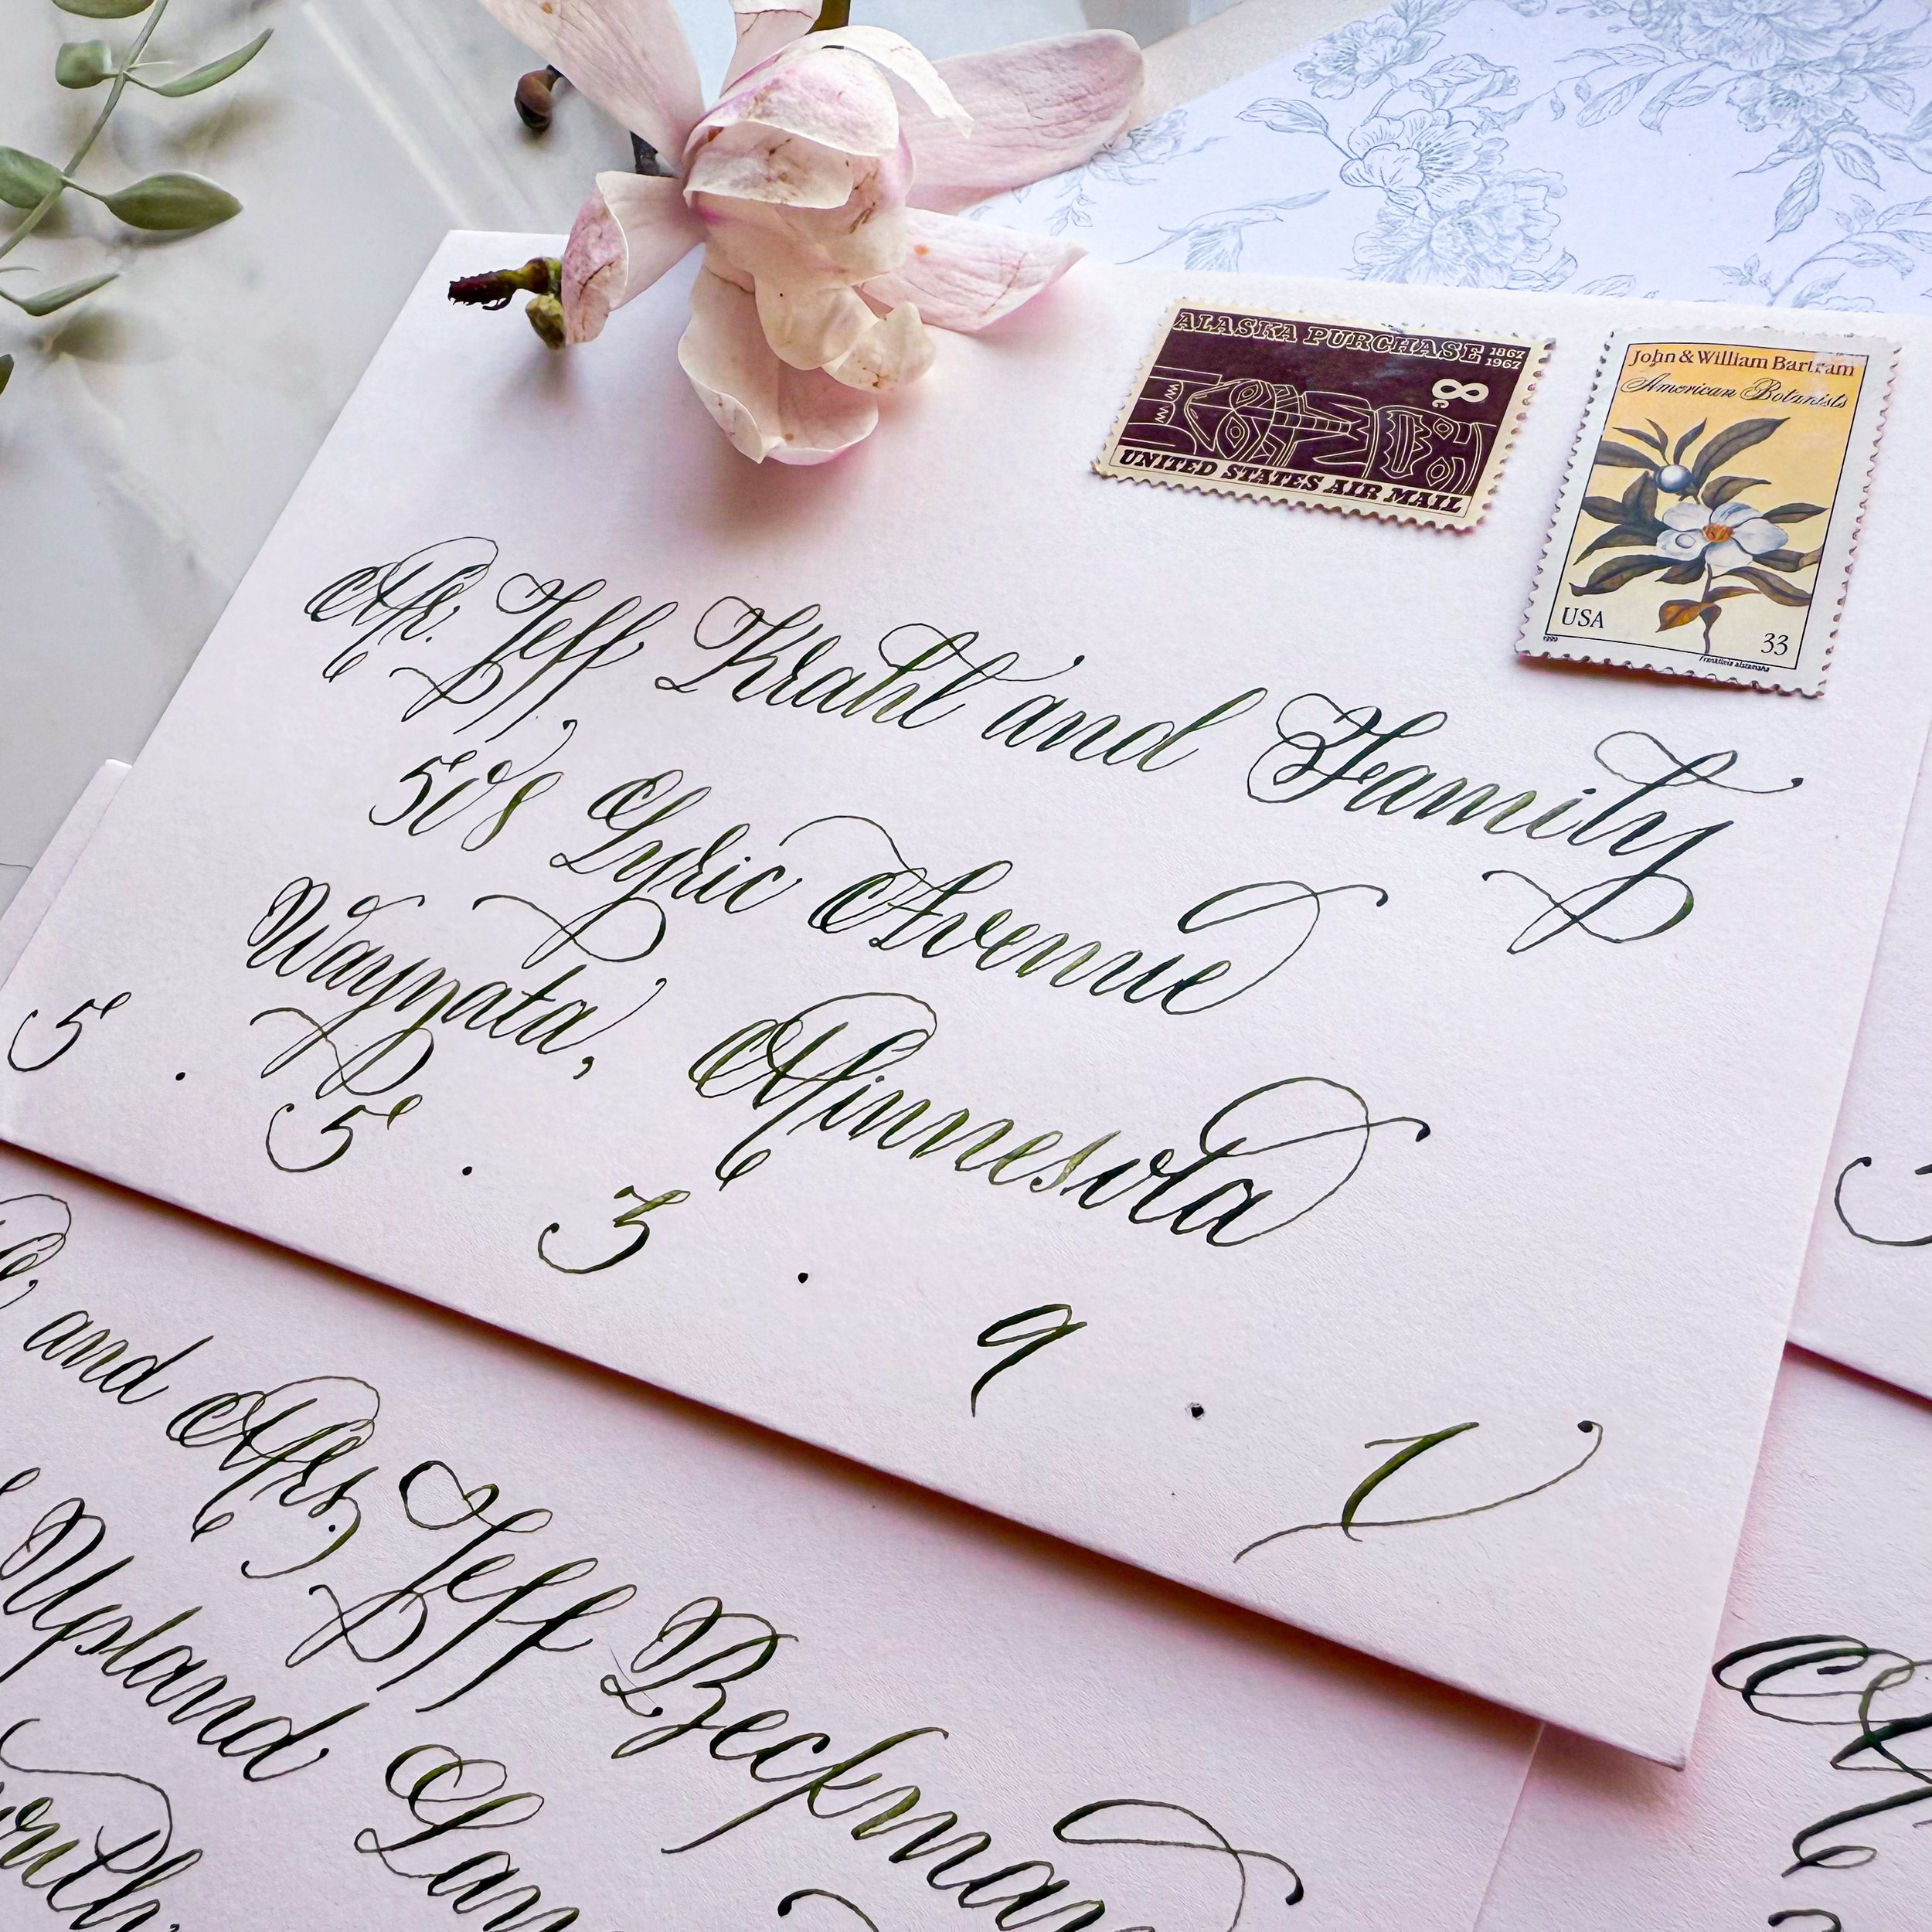 ALASKA PURCHASE 1867 1967
8c
UNITED STATES AIR MAIL
John & William Bartram
American Botanists
USA 33
1999 Franklinia alatamaha
Mr. Jeff Krahl and Family
508 Lyric Avenue
Wayzata, Minnesota
5 . 5 . 3 . 9 . 1
and Mrs. Jeff Beckman
Upland Lan